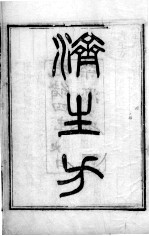 濟生方